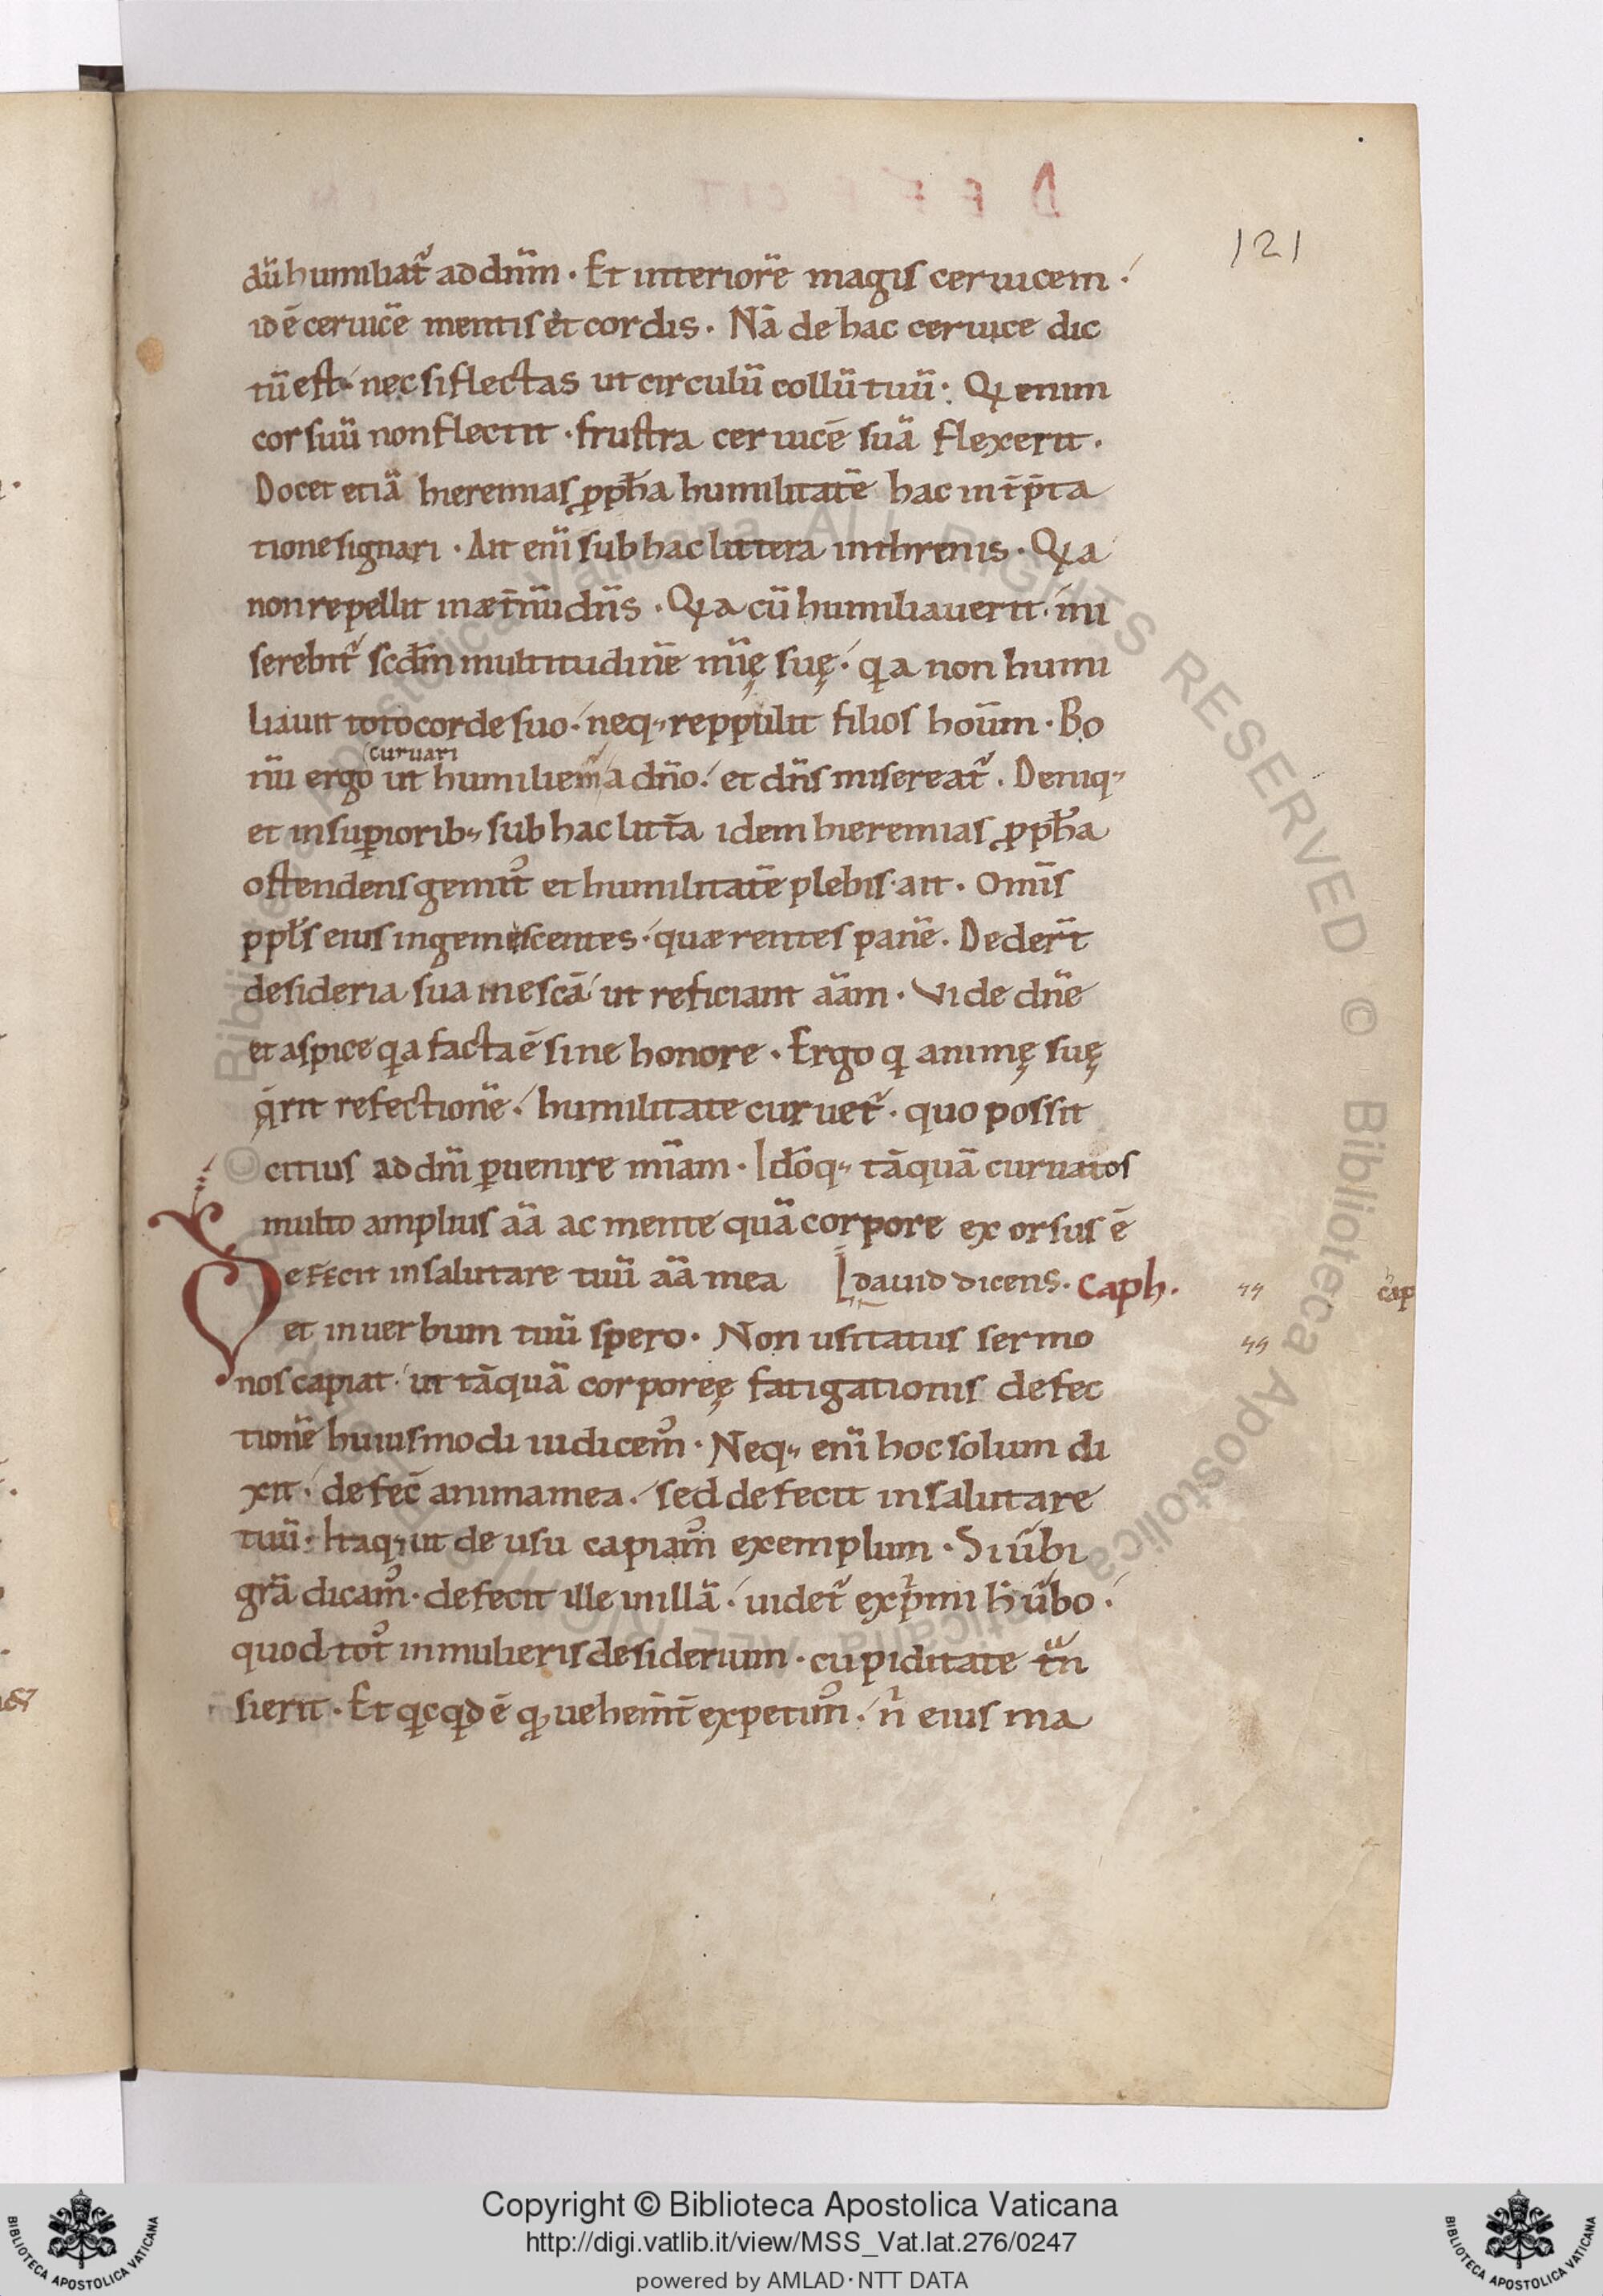 121
dũ humiliat᷑ ad dñm · Et interiorẽ magis ceruicem ·
id ẽ ceruicẽ mentis et cordis · Nã de hac ceruice dic
tũ est · nec si flectas ut circulũ collũ tuũ : Qi enim
cor suũ non flectit · frustra ceruicẽ suã flexerit ·
Docet etiã hieremias ꝓpħa humilitatẽ hac int̃p̃ta
tione signari · Ait eni᷑ sub hac littera in threnis · Qia
non repellit in æt̃nũ dñs · Qia cũ humiliauerit · mi
serebit᷑ scdm̃ multitudinẽ mĩę suę · qia non humi
liauit toto corde suo · neq; reppulit filios hoũm · Bo
curuari
nũ ergo ut humiliem᷑ a dño · et dñs misereat᷑ · Deniq;
et in suꝑiorib; sub hac litt̃a idem hieremias ꝓpħa
ostendens gemit᷒ et humilitatẽ plebis ait · Omĩs
ppl̃s eius ingemescentes · quærentes panẽ · Deder̃t
desideria sua in escã ut reficiant aãm · Vide dñe
et aspice qia facta ẽ sine honore · Ergo qi animę suę
q̃rit refectionẽ · humilitate curuet᷑ · quo possit
citius ad dm̃ ꝑuenire mĩam · Idõq; tãquã curuatos
multo amplius aã ac mente quã corpore exorsus ẽ
Defecit in salutare tuũ aã mea dauid dicens. caph.
et in uerbum tuũ spero · Non usitatus sermo
nos capiat · ut tãquã corporeę fatigationis defec
tionẽ huiusmodi iudicem᷒ · Neq; eni᷑ hoc solum di
xit · defec̃ anima mea · sed defecit in salutare
tuũ · Itaq; ut de usu capiam᷒ exemplum · Si ũbi
grã dicam᷒ · defecit ille in illã · uidet᷑ exp̃mi h̃ ũbo ·
quod tot᷒ in mulieris desiderium · cupiditate t̃n
sierit · Et qicqid ẽ qd uehem̃t̃ expetim᷒ · ñ eius ma
cap
Copyright © Biblioteca Apostolica Vaticana
http://digi.vatlib.it/view/MSS_Vat.lat.276/0247
powered by AMLAD·NTT DATA
BIBLIOTECA APOSTOLICA VATICANA
BIBLIOTECA APOSTOLICA VATICANA